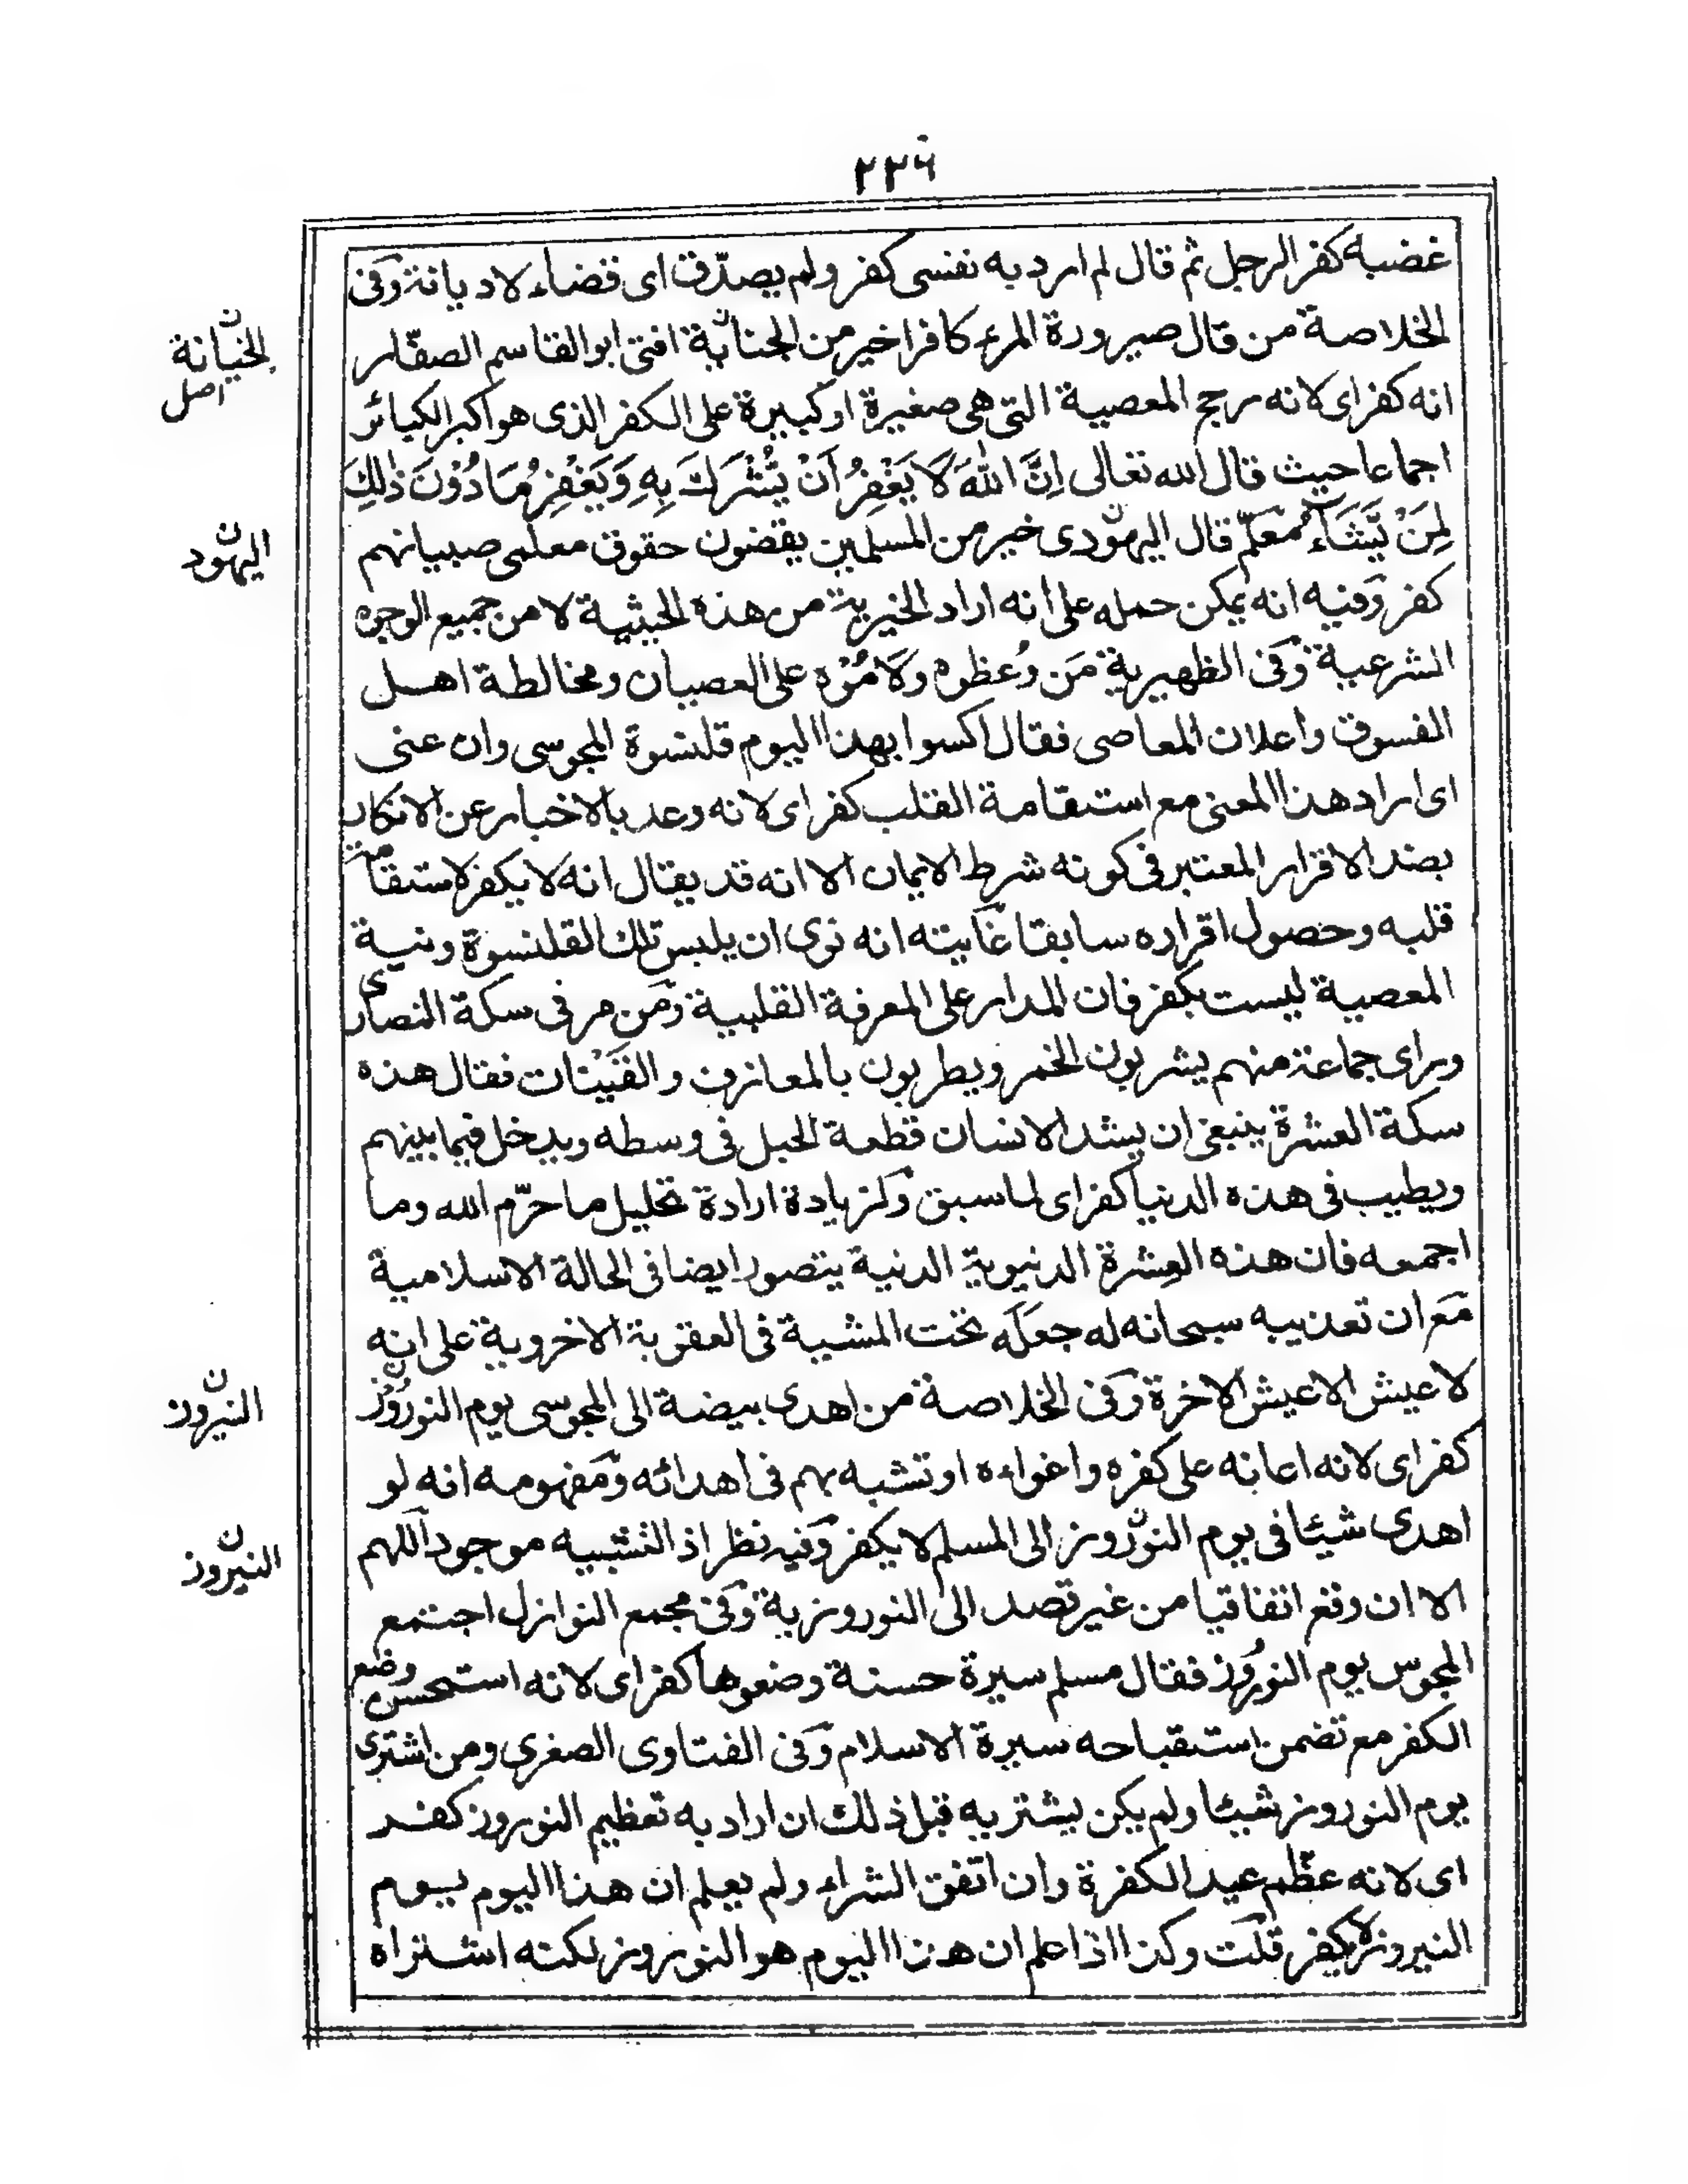 ٢٣٦
غضبه كفر الرجل ثم قال لم ارد به نفسى كفر ولم يصدّق اى قضاء لا ديانة وفى
الخلاصة من قال صيرورة المرء كافرا خير من الجنابة افتى ابو القاسم الصفّار
انه كفر اى لانه رجح المعصية التى هى صغيرة او كبيرة على الكفر الذى هو اكبر الكبائر
اجماعا حيث قال الله تعالى اِنَّ اللّٰهَ لَا يَغْفِرُ اَنْ يُّشْرَكَ بِهٖ وَيَغْفِرُ مَا دُوْنَ ذٰلِكَ
لِمَنْ يَّشَآءُ معلّم قال اليهودى خير من المسلمين يقضون حقوق معلمى صبيانهم
كفر وفيه انه يمكن حمله على انه اراد الخيرية من هذه الحيثية لا من جميع الوجوه
الشرعية وفى الظهيرية مَن وُعظوه ولَامُوْه على العصيان ومخالطة اهل
الفسوق واعلان المعاصى فقال اكسوا بهذا اليوم قلنسوة المجوسى وان عنى
اى اراد هذا المعنى مع استقامة القلب كفر اى لانه وعد بالاخبار عن الانكار
بضد الاقرار المعتبر فى كونه شرط الايمان الا انه قد يقال انه لا يكفر لاستقامة
قلبه وحصول اقراره سابقا غايته انه نوى ان يلبس تلك القلنسوة ونية
المعصية ليست بكفر فان المدار على المعرفة القلبية ومن مر فى سكة النصارى
وراى جماعة منهم يشربون الخمر ويطربون بالمعازف والقَيْنات فقال هذه
سكة العشرة ينبغى ان يشد الانسان قطعة الحبل فى وسطه ويدخل فيما بينهم
ويطيب فى هذه الدنيا كفر اى لما سبق ولزيادة ارادة تحليل ما حرّم الله وما
اجمعه فان هذه العِشرة الدنيوية الدنية يتصور ايضا فى الحالة الاسلامية
مع ان تعذيبه سبحانه له جعله تحت المشية فى العقوبة الاخروية على انه
لا عيش الا عيش الاخرة وفى الخلاصة من اهدى بيضة الى المجوسى يوم النوروز
كفر اى لانه اعانه على كفره واغواءه او تشبه بهم فى اهدائه ومفهومه انه لو
اهدى شيئا فى يوم النوروز الى المسلم لا يكفر وفيه نظر اذ التشبيه موجود اللهم
الا ان وقع اتفاقيا من غير قصد الى النوروزية وفى مجمع النوازل اجتمع
المجوس يوم النوروز فقال مسلم سيرة حسنة وضعوها كفر اى لانه استحسن وضع
الكفر مع تضمن استقباحه سيرة الاسلام وفى الفتاوى الصغرى ومن اشترى
يوم النوروز شيئا ولم يكن يشتريه قبل ذلك ان اراد به تعظيم النوروز كفر
اى لانه عظّم عيد الكفرة وان اتفق الشراء ولم يعلم ان هذا اليوم يوم
النيروز لا يكفر قلت وكذا اذا علم ان هذا اليوم هو النوروز لكنه اشتراه
ن
الخيانة
اصل
ن
اليهود
ن
النيروز
ن
النيروز